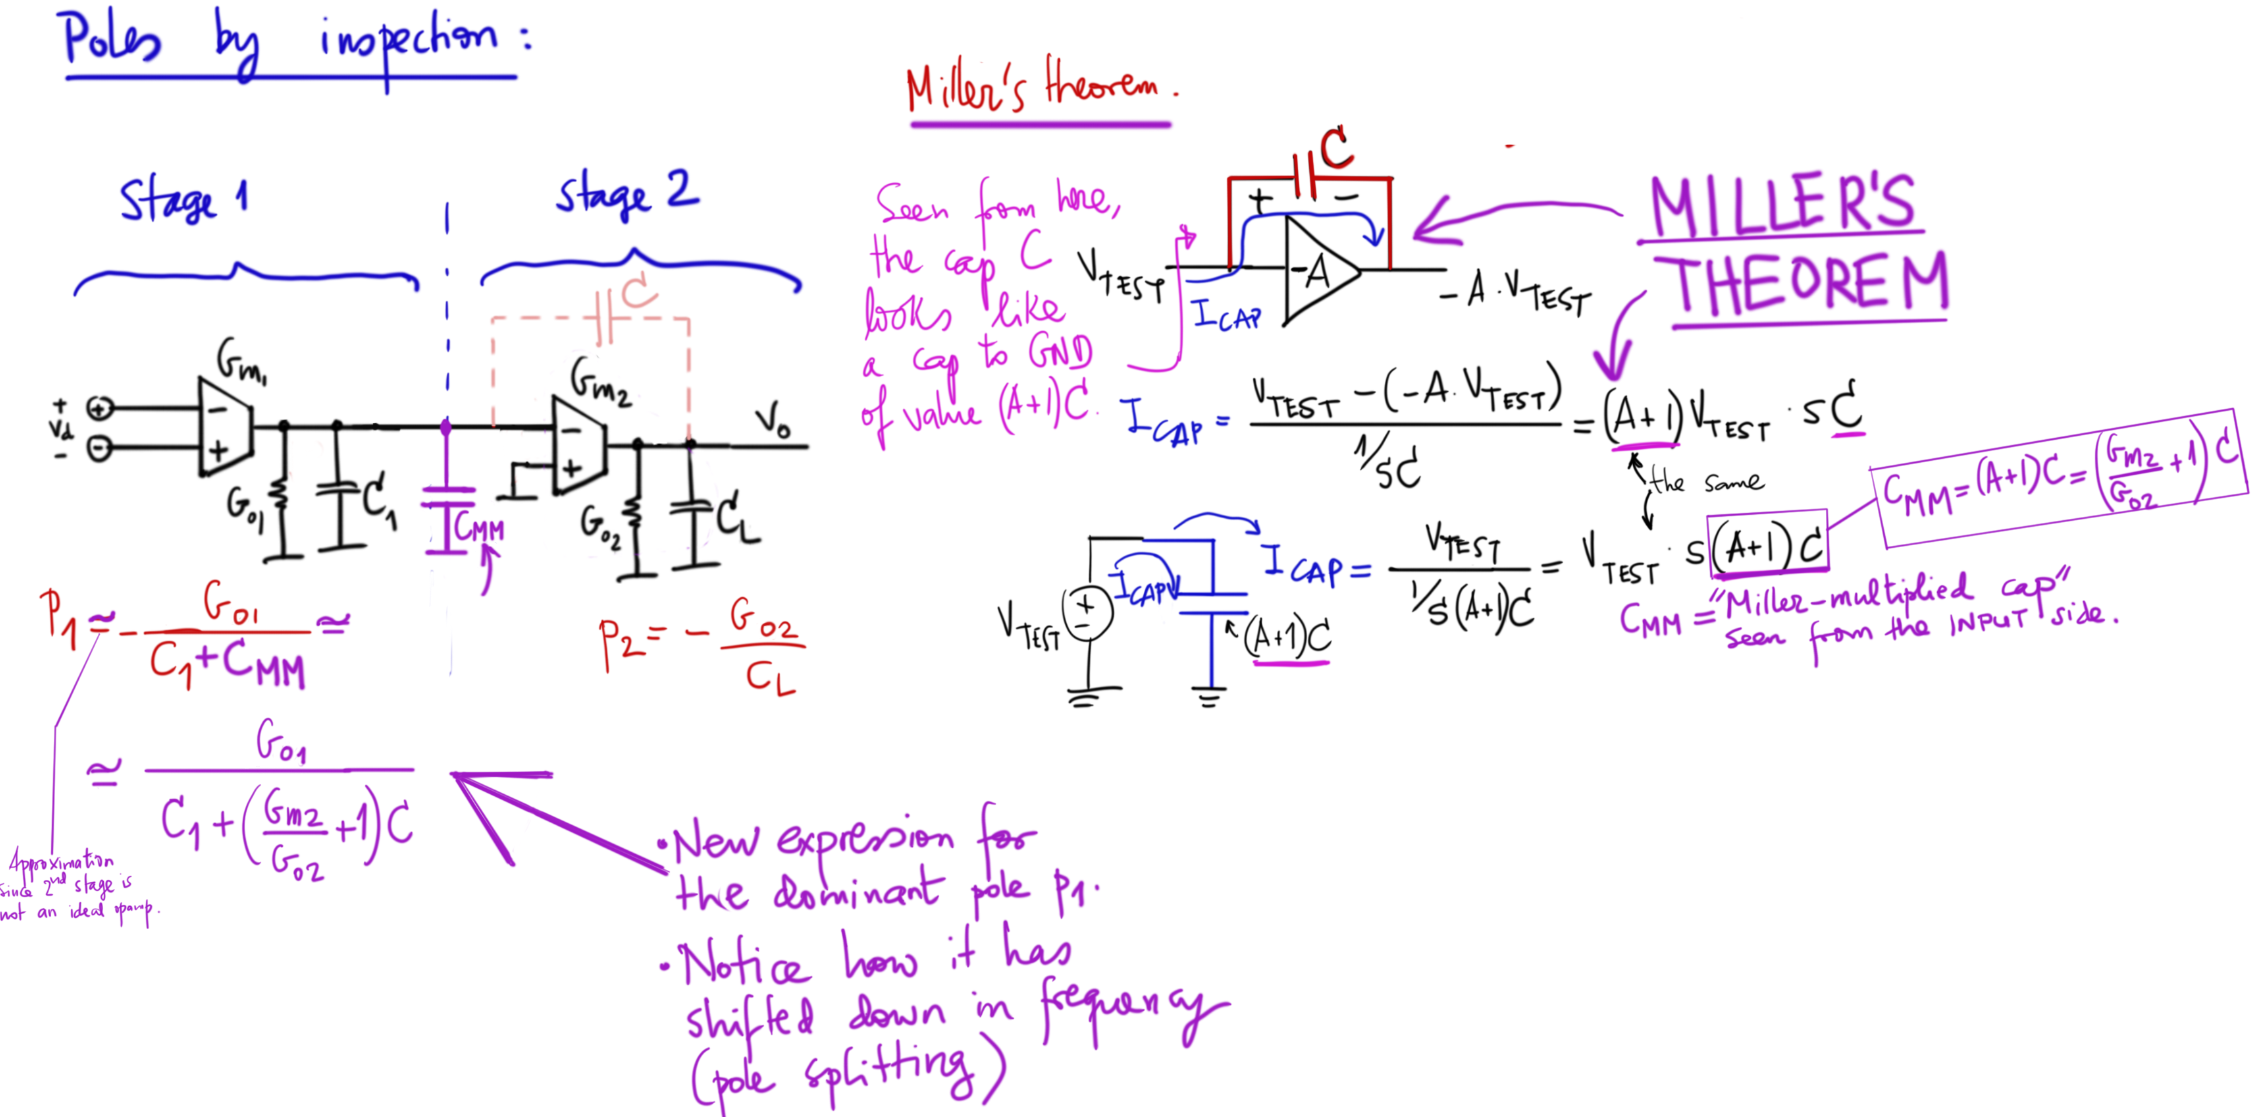 Poles by inspection:
Miller's theorem.
Stage 1
Stage 2
C
Gm1
Gm2
+
Vd
-
+
-
-
+
-
+
Go1
C1
CMM
Go2
CL
Vo
P1 ≃ - Go1 / (C1 + CMM) ≃
P2 = - Go2 / CL
≃ Go1 / (C1 + (Gm2/Go2 + 1) C)
Approximation
since 2nd stage is
not an ideal opamp.
• New expression for
the dominant pole p1.
• Notice how it has
shifted down in frequency
(pole splitting)
Seen from here,
the cap C
looks like
a cap to GND
of value (A+1)C.
C
+ -
VTEST
ICAP
-A
-A·VTEST
MILLER'S
THEOREM
ICAP = (VTEST - (-A·VTEST)) / (1/sC) = (A+1) VTEST · sC
the same
VTEST
+
-
ICAP
(A+1)C
ICAP = VTEST / (1/s(A+1)C) = VTEST · s(A+1)C
CMM = (A+1)C = (Gm2/Go2 + 1) C
CMM = "Miller-multiplied cap"
seen from the INPUT side.